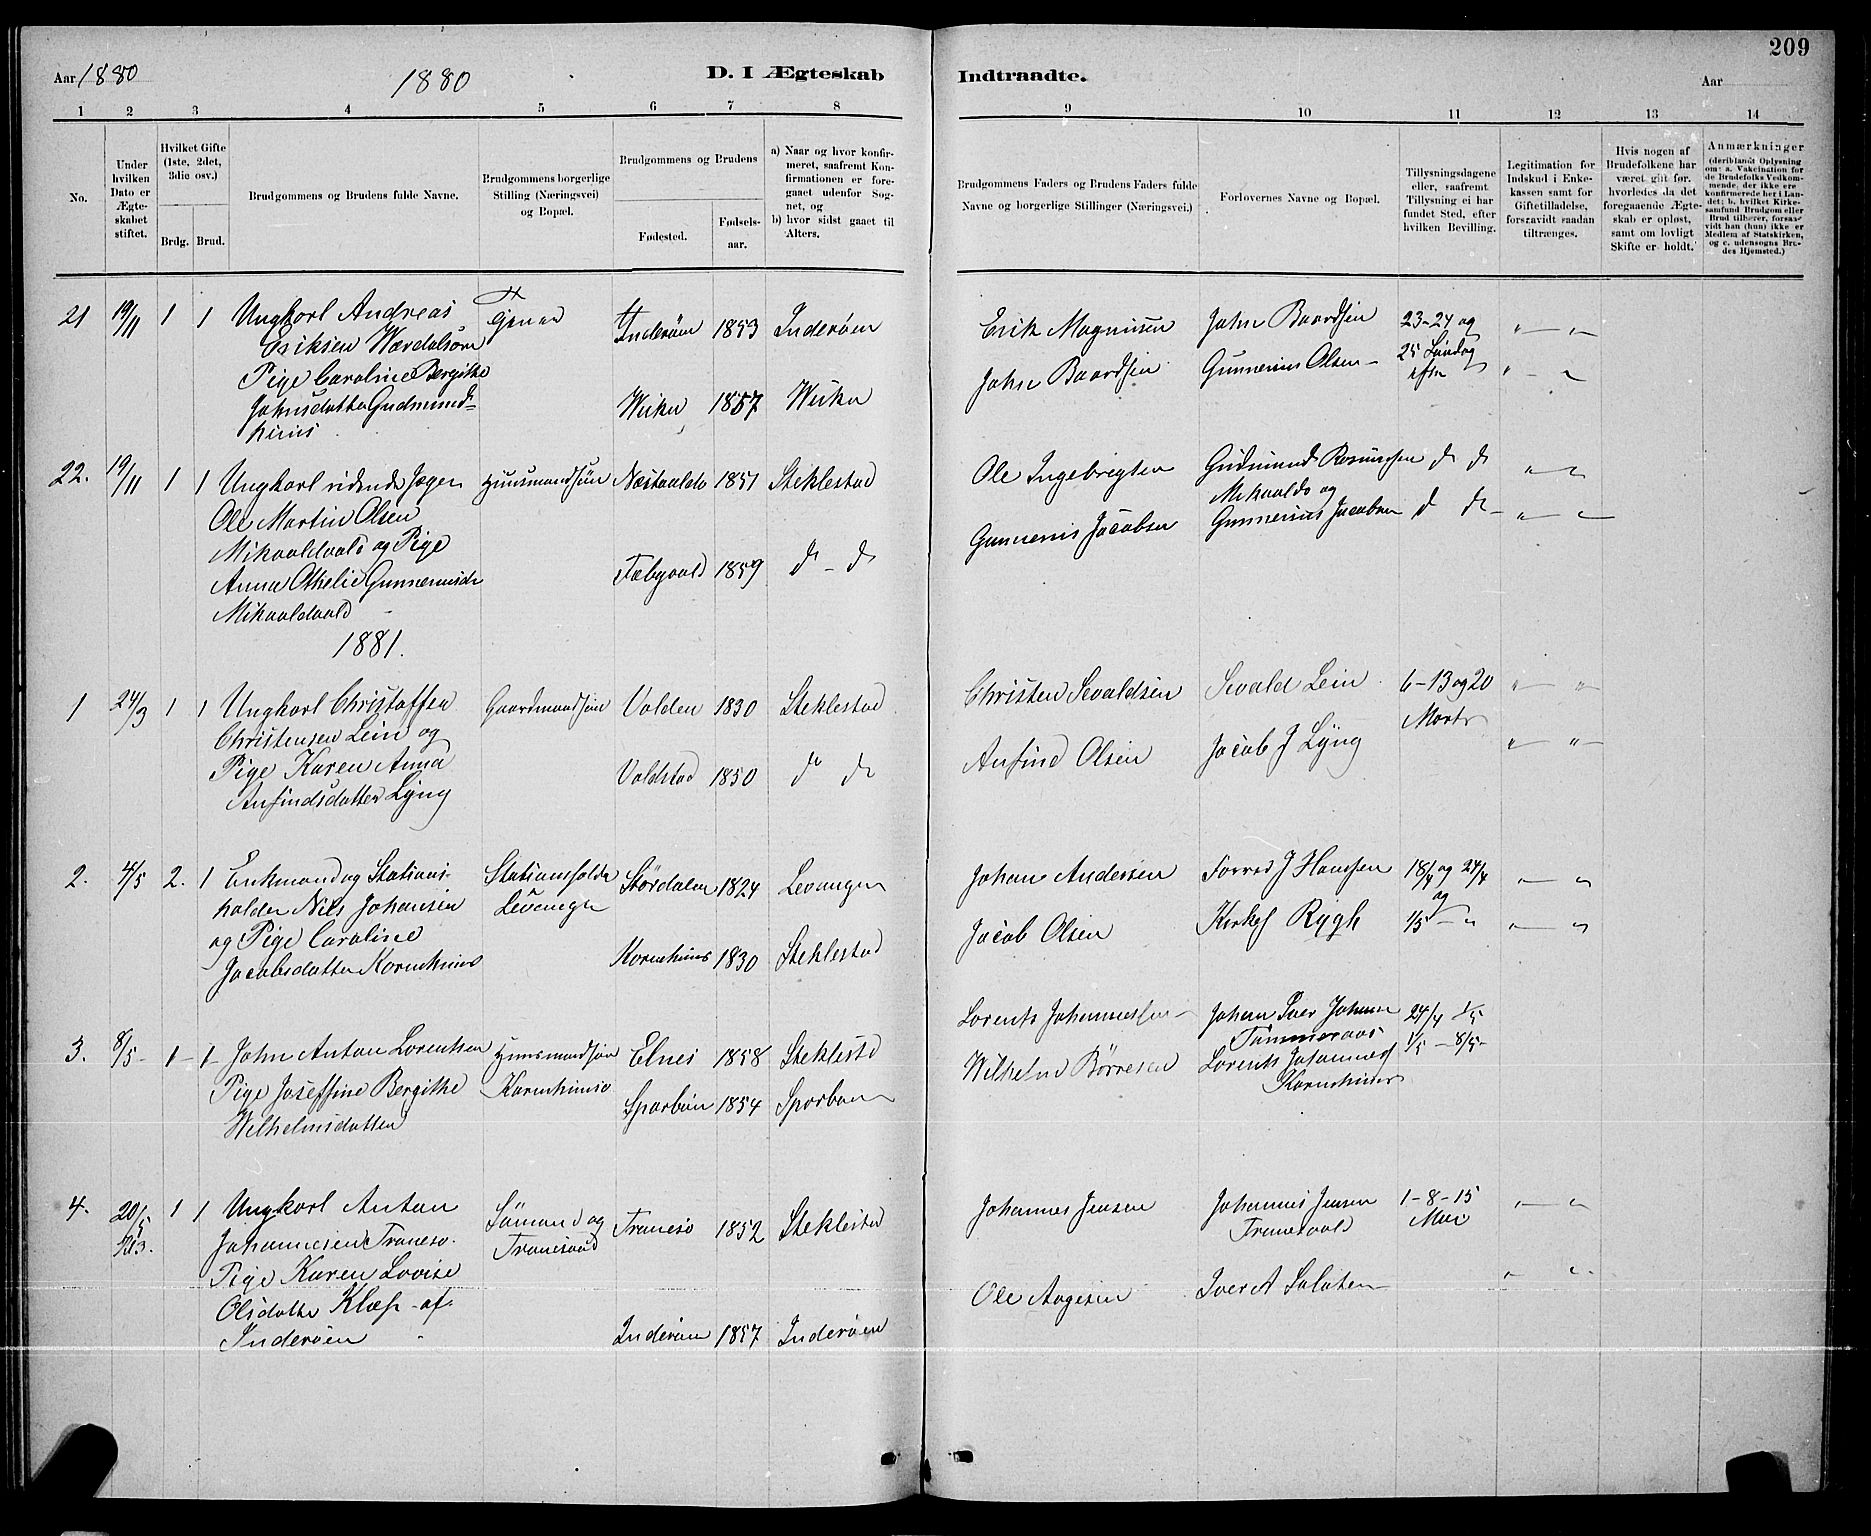 209
Aar 1880
1880
D. I Ægteskab
Indtraadte.
Aar
1 2 3 4 5 6 7 8 9 10 11 12 13 14
No.
Under
hvilken
Dato er
Ægte-
skabet
stiftet.
Hvilket Gifte
(1ste, 2det,
3die osv.)
Brdg. Brud.
Brudgommens og Brudens fulde Navne.
Brudgommens borgerlige
Stilling (Næringsvei)
og Bopæl.
Brudgommens og Brudens
Fødested.
Fødsels-
aar.
a) Naar og hvor konfir-
meret, saafremt Kon-
firmationen er fore-
gaaet udenfor Sog-
net, og
b) hvor sidst gaaet til
Alters.
Brudgommens Faders og Brudens Faders fulde
Navne og borgerlige Stillinger (Næringsvei.)
Forlovernes Navne og Bopæl.
Tillysningsdagene
eller, saafremt
Tillysning ei har
fundet Sted, efter
hvilken Bevilling.
Legitimation for
Indskud i Enke-
kassen samt for
Giftetilladelse,
forsaavidt saadan
tiltrænges.
Hvis nogen af
Brudefolkene har
været gift før,
hvorledes da det
foregaaende Ægte-
skab er opløst,
samt om lovligt
Skifte er holdt.
Anmærkninger
(deriblandt Oplysning
om: a. Vakcination for
de Brudefolks Vedkom-
mende, der ikke ere
konfirmerede her i Lan-
det; b. hvilket Kirke-
samfund Brudgom eller
Brud tilhører, forsaa-
vidt han (hun) ikke er
Medlem af Statskirken,
og c. udensogns Bru-
des Hjemsted.)
21 19/11 1 1 Ungkarl Andreas
Eriksen Wærdalsøre
Pige Caroline Bergitte
Johnsdatter Gudmund-
huus
Inderøen 1853 Inderøen
Wiken 1857 Wiken
Erik Magnusen
Johs Baardsen
John Baardsen
Gunnerius Olsen
23-24 og
25 Søndag
efter
" "
" "
22. 19/11 1 1 Ungkarl ridende Jæger
Ole Martin Olsen
Mikvoldvald og Pige
Anna Othelie Gunneriusdr
Mikvoldvald
Huusmandsøn
Næstvoldv 1851 Steklestad
Fæbyvald 1859 do - do
Ole Ingebrigtsen
Gunnerius Jacobsen
Gudmund Rasmussen
Mikvoldv og
Gunnerius Jacobsen
do do
do do
" "
" "
1881.
1 24/3 1 1 Ungkarl Christoffer
Christensen Lein og
Pige Karen Anna
Anfindsdatter Lyng
Gaardmandsøn
Volden 1830 Steklestad
Voldstad 1850 do do
Christen Sevaldsen
Anfind Olsen
Sevald Lein
Jacob J Lyng
6-13 og 20
Marts
" "
" "
2. 4/5 2. 1 Enkmand og Stations-
holder Nils Johansen
og Pige Caroline
Jacobsdatter Kornhuus
Stationsholder
Levanger
Størdalen 1824 Levanger
Kornhuus 1830 Steklestad
Johan Andersen
Jacob Olsen
Forred J Hansen
Kirkes Rygh
18/4 og 24/4
og
1/5 - "
" "
" "
3. 8/5 - 1 - 1 - John Anton Lorentsen
Pige Joseffine Bergithe
Wilhelmsdatter
Huusmandsøn
Elnes 1858 Steklestd
Sparbuen 1854 Sparbuen
Lorents Johannessen
Wilhelm Børresen
Johan Iver Johnsen
Tømmeraas
Lorents Johannes
24/4 1/5
1/5 - 8/5 -
4. 20/5 1 1 Ungkarl Anton
Johannesen Tranesv.
Pige Karen Lovise
Olsdatter Klæp - af
Inderøen
Sömand og
Tranesvald
Tranesv 1852 Steklestad
Inderøen 1857 Inderøen
Johannes Jensen
Ole Aagesen
Johannes Jensen
Tranesvald
Iver A Salaten
1-8-15
Mai
" "
" "